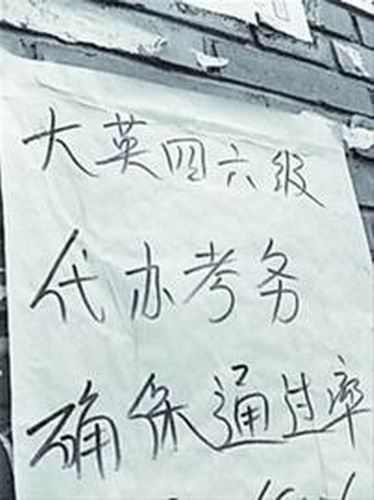 大英四六级
代办考务
确保通过率